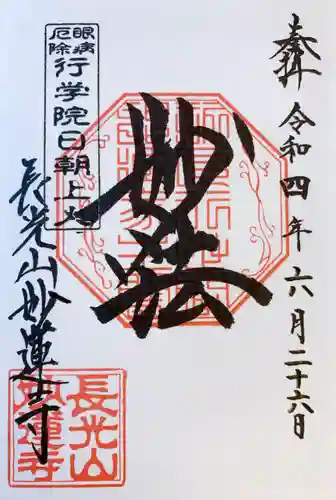 奉拝 令和四年六月二十六日
妙法
眼病
厄除
行学院日朝上人
長光山妙蓮寺
長光山
妙蓮寺